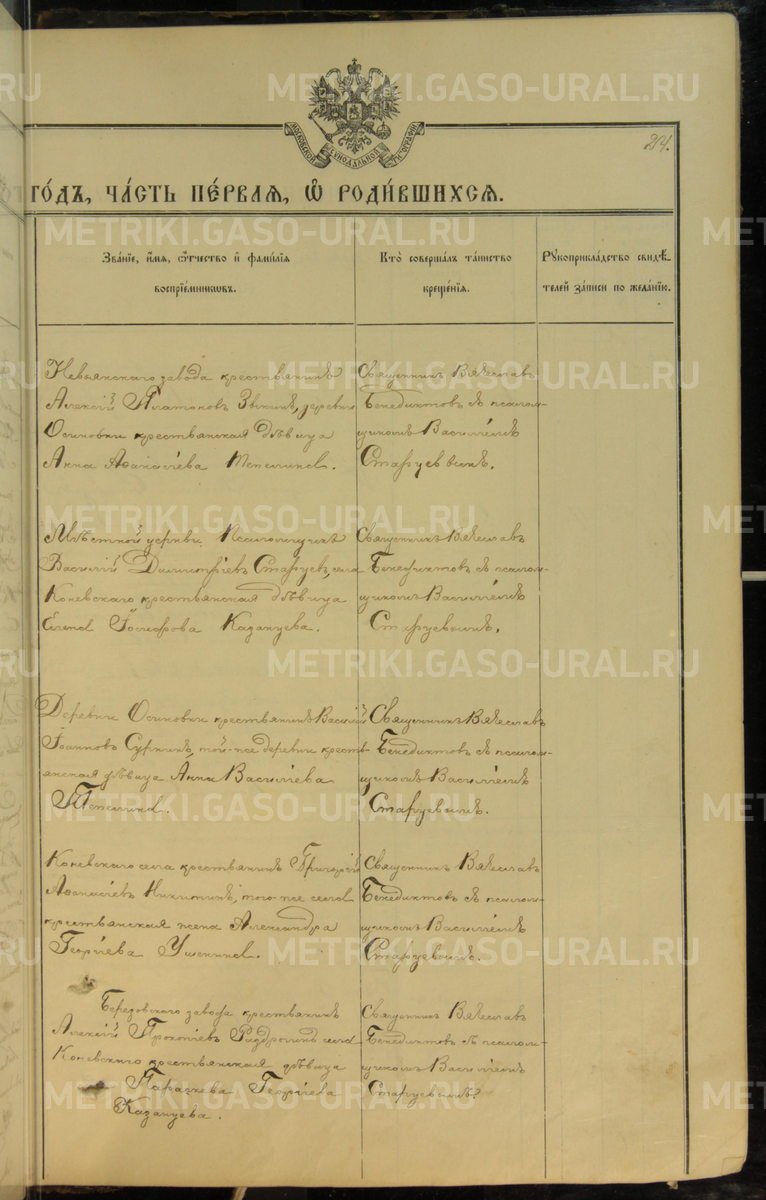 214.
МОСКОВСКОЙ СѴНОДАЛЬНОЙ ТИПОГРАФІИ
ГО́ДЪ, ЧА́СТЬ ПЕ́РВАЯ, Ѽ РОДИ́ВШИХСЯ.
Зва́нїе, и҆́мя, Ѻ҆́тчество и҆ фами́лїя
воспрїе́мниковъ.
Кто̀ соверша́лъ та́инство
креще́нїя.
Рꙋкоприкла́дство свидѣ́-
телей за́писи по жела́нїю.
Невьянскаго завода крестьянинъ
Алексій Платоновъ Звкинъ, деревни
Осиновки крестьянская дѣвица
Анна Аѳанасіева Тепелина.
Священникъ Вячеславъ
Бенедиктовъ съ псалом-
щикомъ Василіемъ
Старцевымъ.
Мѣстной церкви Псаломщикъ
Василій Димитріевъ Старцевъ, села
Коневскаго крестьянская дѣвица
Елена Казанцева.
Священникъ Вячеславъ
Бенедиктовъ съ псалом-
щикомъ Василіемъ
Старцевымъ.
Деревни Осиновки крестьянинъ Василій
Іоанновъ Суркинъ, той-же деревни кресть-
янская дѣвица Анна Василіева
Тепелина.
Священникъ Вячеславъ
Бенедиктовъ съ псалом-
щикомъ Василіемъ
Старцевымъ.
Коневскаго села крестьянинъ Григорій
Аѳанасіевъ Никитинъ, того-же села
крестьянская жена Александра
Георгіева Ушенина.
Священникъ Вячеславъ
Бенедиктовъ съ псалом-
щикомъ Василіемъ
Старцевымъ.
Березовскаго завода крестьянинъ
Алексій Прокопіевъ села
Коневскаго крестьянская дѣвица
Параскева Георгіева
Казанцева.
Священникъ Вячеславъ
Бенедиктовъ съ псалом-
щикомъ Василіемъ
Старцевымъ.
METRIKI.GASO-URAL.RU